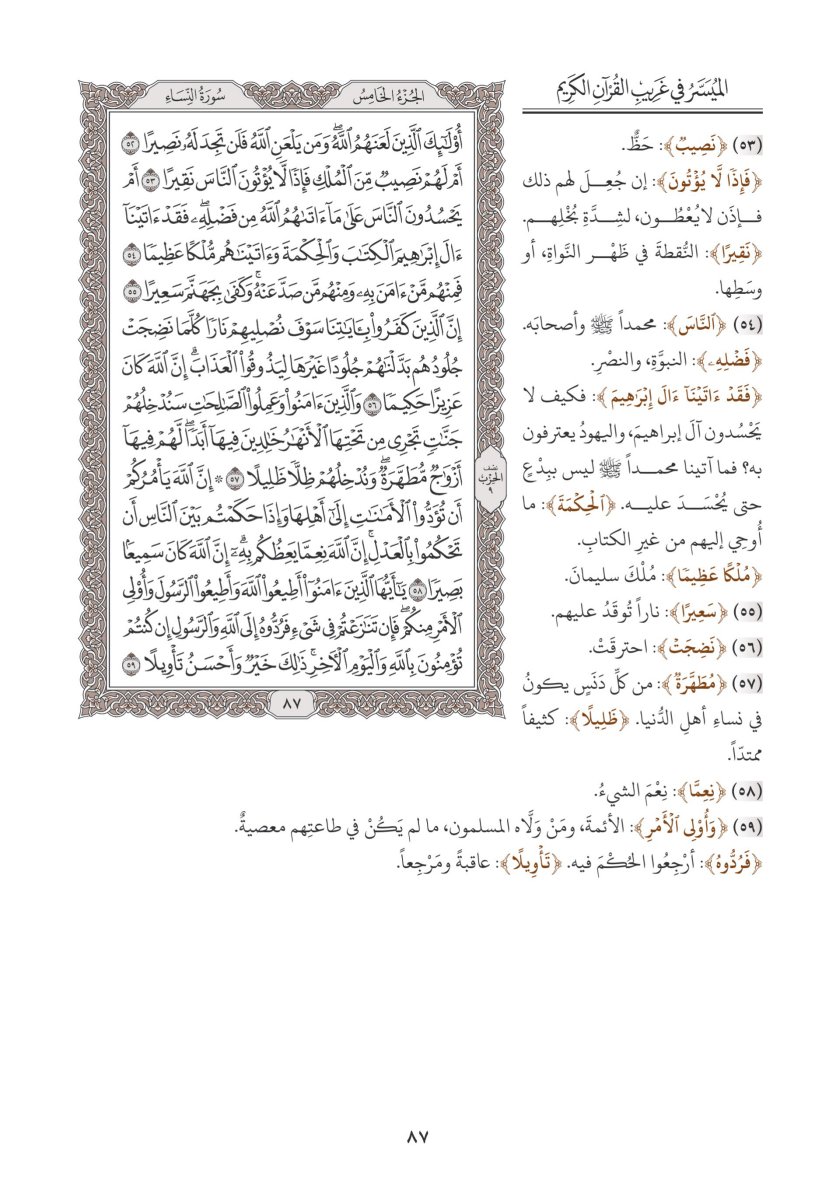 الميسر في غريب القرآن الكريم
الجزء الخامس
سورة النساء
أُوْلَٰٓئِكَ ٱلَّذِينَ لَعَنَهُمُ ٱللَّهُۖ وَمَن يَلْعَنِ ٱللَّهُ فَلَن تَجِدَ لَهُۥ نَصِيرًا ٥٢
أَمْ لَهُمْ نَصِيبٌ مِّنَ ٱلْمُلْكِ فَإِذًا لَّا يُؤْتُونَ ٱلنَّاسَ نَقِيرًا ٥٣ أَمْ
يَحْسُدُونَ ٱلنَّاسَ عَلَىٰ مَآ ءَاتَىٰهُمُ ٱللَّهُ مِن فَضْلِهِۦۖ فَقَدْ ءَاتَيْنَآ
ءَالَ إِبْرَٰهِيمَ ٱلْكِتَٰبَ وَٱلْحِكْمَةَ وَءَاتَيْنَٰهُم مُّلْكًا عَظِيمًا ٥٤
فَمِنْهُم مَّنْ ءَامَنَ بِهِۦ وَمِنْهُم مَّن صَدَّ عَنْهُۚ وَكَفَىٰ بِجَهَنَّمَ سَعِيرًا ٥٥
إِنَّ ٱلَّذِينَ كَفَرُواْ بِـَٔايَٰتِنَا سَوْفَ نُصْلِيهِمْ نَارًا كُلَّمَا نَضِجَتْ
جُلُودُهُم بَدَّلْنَٰهُمْ جُلُودًا غَيْرَهَا لِيَذُوقُواْ ٱلْعَذَابَۗ إِنَّ ٱللَّهَ كَانَ
عَزِيزًا حَكِيمًا ٥٦ وَٱلَّذِينَ ءَامَنُواْ وَعَمِلُواْ ٱلصَّٰلِحَٰتِ سَنُدْخِلُهُمْ
جَنَّٰتٍ تَجْرِى مِن تَحْتِهَا ٱلْأَنْهَٰرُ خَٰلِدِينَ فِيهَآ أَبَدًاۖ لَّهُمْ فِيهَآ
أَزْوَٰجٌ مُّطَهَّرَةٌۖ وَنُدْخِلُهُمْ ظِلًّا ظَلِيلًا ٥٧ ۞ إِنَّ ٱللَّهَ يَأْمُرُكُمْ
أَن تُؤَدُّواْ ٱلْأَمَٰنَٰتِ إِلَىٰٓ أَهْلِهَا وَإِذَا حَكَمْتُم بَيْنَ ٱلنَّاسِ أَن
تَحْكُمُواْ بِٱلْعَدْلِۚ إِنَّ ٱللَّهَ نِعِمَّا يَعِظُكُم بِهِۦٓۗ إِنَّ ٱللَّهَ كَانَ سَمِيعًۢا
بَصِيرًا ٥٨ يَٰٓأَيُّهَا ٱلَّذِينَ ءَامَنُوٓاْ أَطِيعُواْ ٱللَّهَ وَأَطِيعُواْ ٱلرَّسُولَ وَأُوْلِى
ٱلْأَمْرِ مِنكُمْۖ فَإِن تَنَٰزَعْتُمْ فِى شَىْءٍ فَرُدُّوهُ إِلَى ٱللَّهِ وَٱلرَّسُولِ إِن كُنتُمْ
تُؤْمِنُونَ بِٱللَّهِ وَٱلْيَوْمِ ٱلْأَخِرِۚ ذَٰلِكَ خَيْرٌ وَأَحْسَنُ تَأْوِيلًا ٥٩
نصف
الحزب
٩
٨٧
(٥٣) ﴿نَصِيبٌ﴾: حَظٌّ.
﴿فَإِذًا لَّا يُؤْتُونَ﴾: إن جُعِلَ لهم ذلك
فإذَن لا يُعْطُون، لشِدَّةِ بُخْلِهم.
﴿نَقِيرًا﴾: النُّقطةَ في ظَهْرِ النَّواةِ، أو
وسَطِها.
(٥٤) ﴿ٱلنَّاسَ﴾: محمداً ﷺ وأصحابَه.
﴿فَضْلِهِۦ﴾: النبوَّةِ، والنصْرِ.
﴿فَقَدْ ءَاتَيْنَآ ءَالَ إِبْرَٰهِيمَ﴾: فكيف لا
يَحْسُدون آلَ إبراهيمَ، واليهودُ يعترفون
به؟ فما آتينا محمداً ﷺ ليس ببِدْعٍ
حتى يُحْسَدَ عليه. ﴿ٱلْحِكْمَةَ﴾: ما
أُوحِي إليهم من غيرِ الكتابِ.
﴿مُّلْكًا عَظِيمًا﴾: مُلْكَ سليمانَ.
(٥٥) ﴿سَعِيرًا﴾: ناراً تُوقَدُ عليهم.
(٥٦) ﴿نَضِجَتْ﴾: احترقَتْ.
(٥٧) ﴿مُّطَهَّرَةٌ﴾: من كلِّ دَنَسٍ يكونُ
في نساءِ أهلِ الدُّنيا. ﴿ظَلِيلًا﴾: كثيفاً
ممتدّاً.
(٥٨) ﴿نِعِمَّا﴾: نِعْمَ الشيءُ.
(٥٩) ﴿وَأُوْلِى ٱلْأَمْرِ﴾: الأئمةَ، ومَنْ وَلَّاه المسلمون، ما لم يَكُنْ في طاعتِهم معصيةٌ.
﴿فَرُدُّوهُ﴾: أرْجِعُوا الحُكْمَ فيه. ﴿تَأْوِيلًا﴾: عاقبةً ومَرْجِعاً.
٨٧